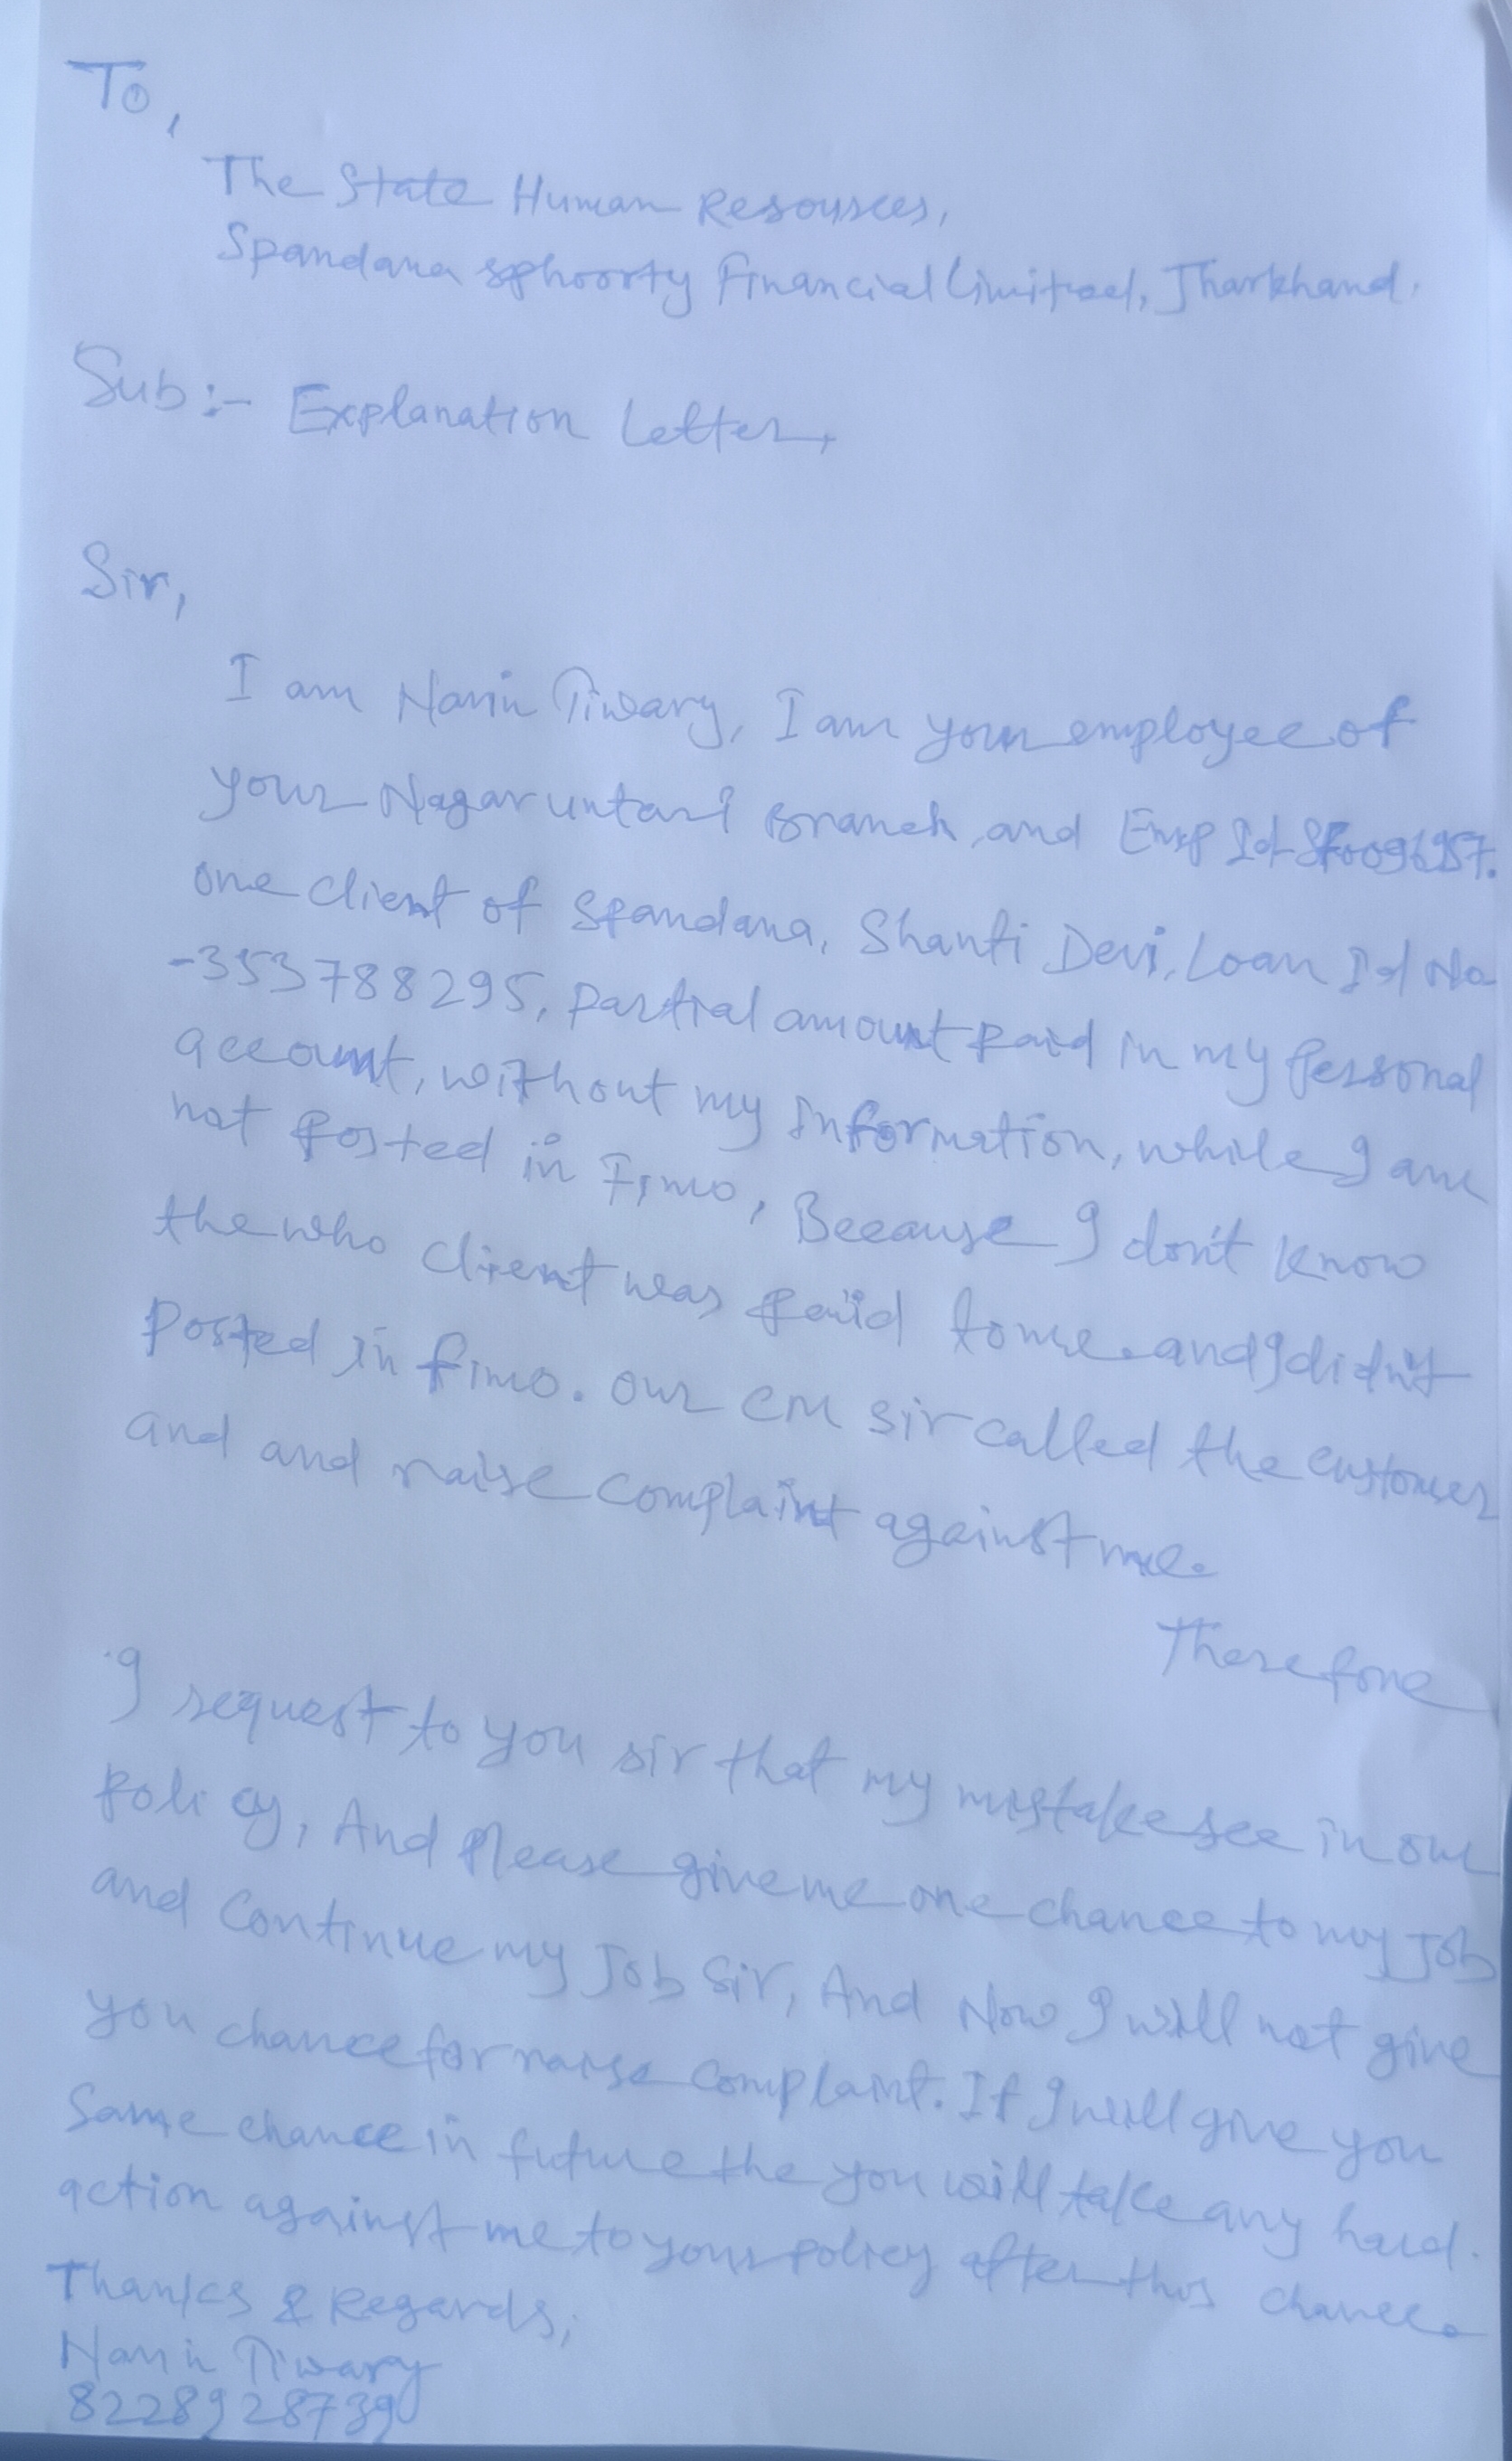 To,
The State Human Resources,
Spandana sphoorty Financial Limited, Jharkhand.
Sub:- Explanation Letter,
Sir,
I am Navin Tiwary, I am your employee of
your Nagaruntari Branch, and Emp Id
one client of Spandana, Shanti Devi, Loan Id No
-353788295, partial amount paid in my personal
account, without my information, while I am
not posted in Fimo, Because I don't know
the who client was paid to me. and I didn't
posted in fimo. our CM sir called the customer
and and raise complaint against me.
Therefore
I request to you sir that my mistake see in our
policy, And please give me one chance to my Job
and Continue my Job sir, And Now I will not give
you chance for raise complaint. If I will give you
Same chance in future the you will take any hard.
action against me to your policy after this chance.
Thanks & Regards,
Navin Tiwary
8228928739